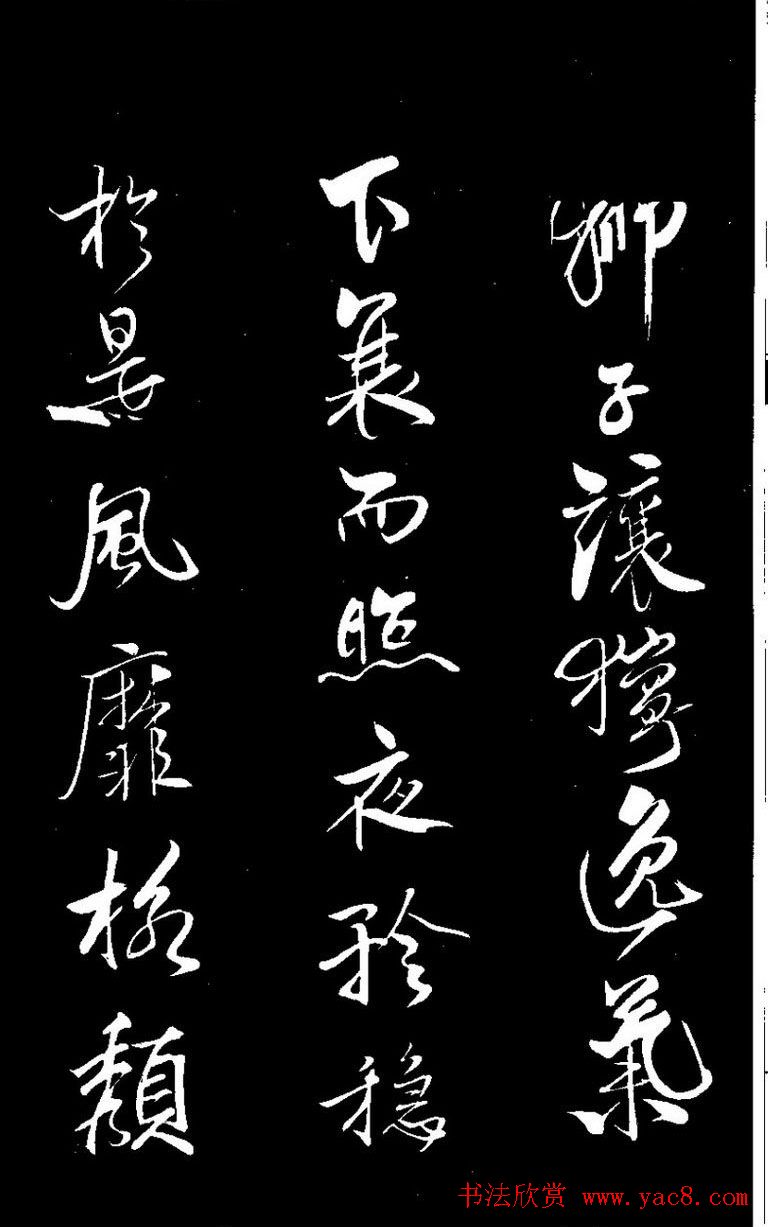 狮子讓獰逸氣
下襲而照夜矜穩
於是風靡格類
书法欣赏 www.yac8.com